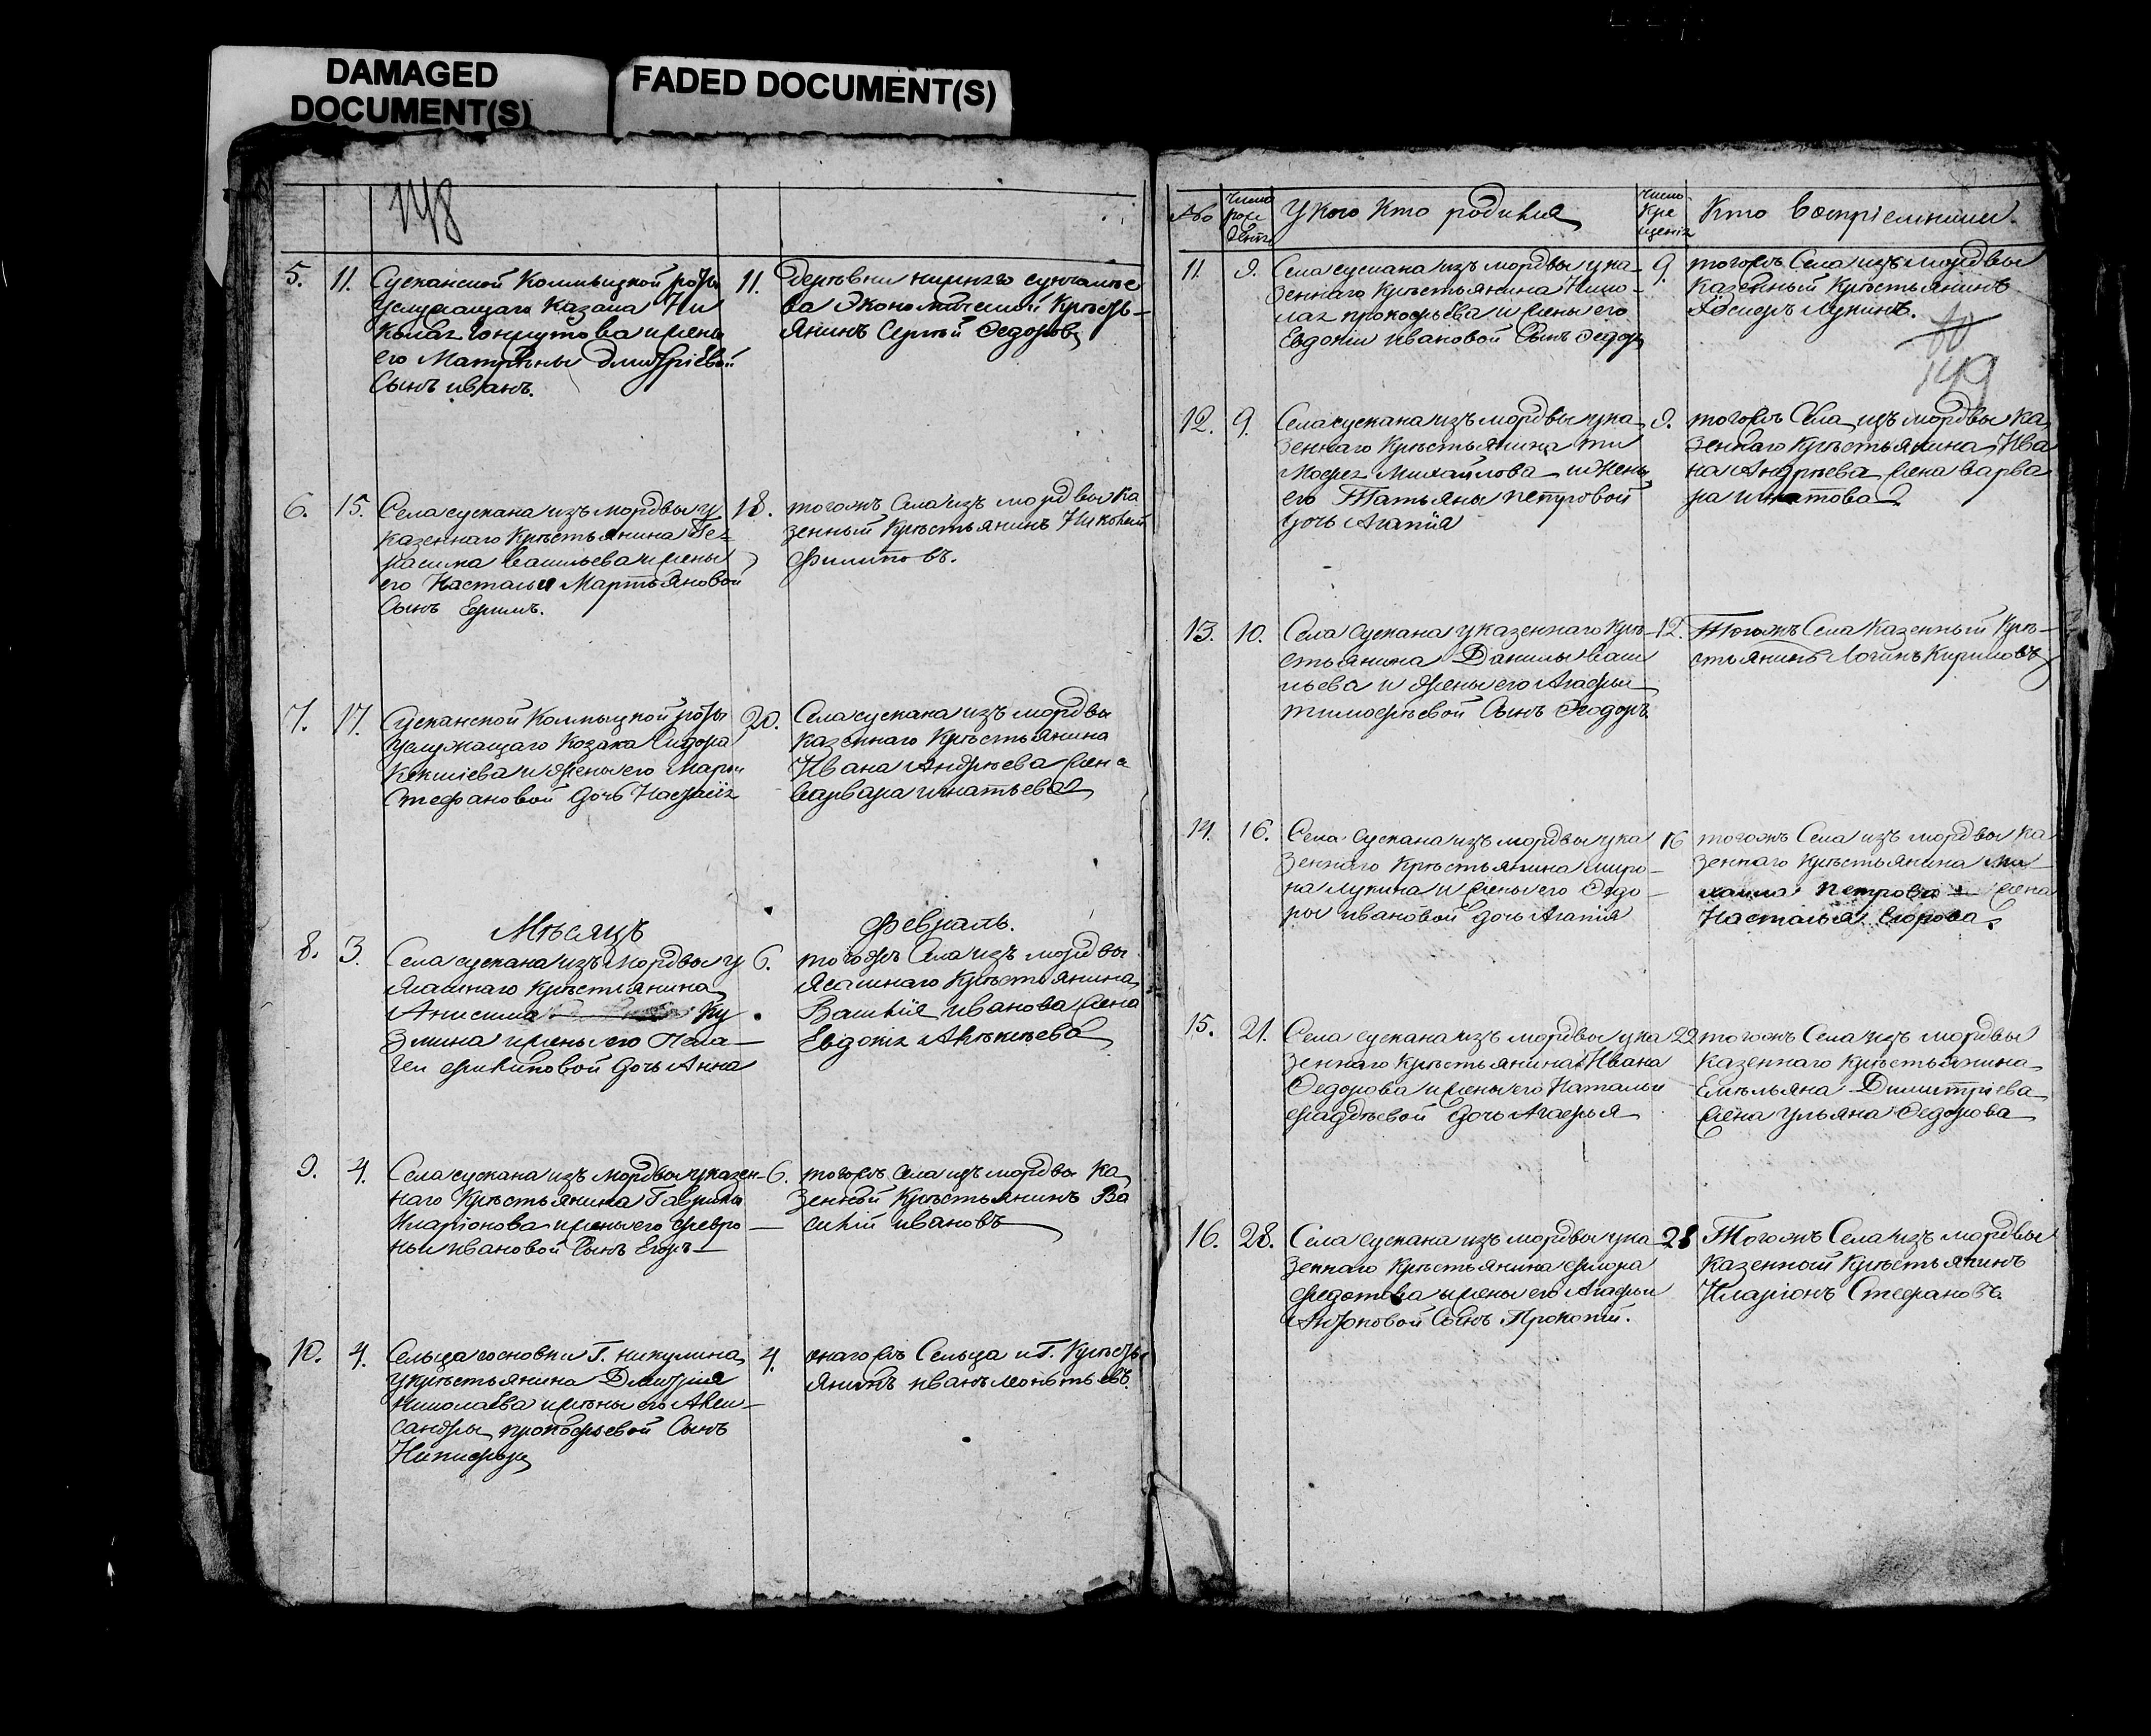 DAMAGED
DOCUMENT(S)
FADED DOCUMENT(S)
148
5. 11. Сусканской Колмыцкой роты 11.
у служащаго Казака Ни
колая и жены
его Матрены Дмитріевой
Сынъ иванъ.
Деревни нижняго
ва Экономической Кресть-
янинъ Сергѣй Федоровъ
6. 15. Села сускана изъ мордвы у 18.
казеннаго Крестьянина Ге-
расима Васильева и жены
его Настасьи Мартьяновой
Сынъ Ефимъ.
тогожъ Села изъ мордвы ка
зенный Крестьянинъ Николай
Филиповъ.
7. 17. Сусканской Колмыцкой роты 20.
у служащаго Козака Сидора
и жены его Марьи
Стефановой дочь
Села сускана изъ мордвы
казеннаго Крестьянина
Ивана Андреева жена
Варвара игнатьева
Мѣсяцъ Февраль.
8. 3. Села сускана изъ мордвы у 6.
ясашнаго Крестьянина
Анисима Ку
змина и жены его Пела-
геи филиповой дочь Анна
тогожъ Села изъ мордвы
Ясашнаго Крестьянина
Василія иванова жена
Евдокія
9. 4. Села сускана изъ мордвы у казен- 6.
наго Крестьянина Гаврила
Иларіонова и жены его февро-
ньи ивановой Сынъ Егоръ
тогожъ Села изъ мордвы ка
зенный Крестьянинъ Ва
силій ивановъ
10. 4. Сельца сосновки Г. никулина 4.
у крестьянина Дмитрія
Николаева и жены его Алек-
сандры прокофьевой Сынъ
Никифоръ
онагожъ Сельца и Г. Кресть
янинъ иванъ
№ Число рож денія У кого кто родился Число кре щенія Кто воспріемники.
149
11. 9. Села сускана изъ мордвы у ка- 9.
зеннаго Крестьянина Нико-
лая прокофьева и жены его
Евдокіи ивановой Сынъ Федоръ
тогожъ Села изъ мордвы
Казенный Крестьянинъ
лукинъ.
12. 9. Села сускана изъ мордвы у ка- 9.
зеннаго Крестьянина ти
мофея Михайлова и жены
его Татьяны петровой
дочь Агапія
тогожъ Села изъ мордвы ка
зеннаго Крестьянина Ива
на Андреева жена варва
ра игнатова
13. 10. Села Сускана у казеннаго кре- 12.
стьянина Данилы Васи
льева и жены его Агафьи
тимофеевой Сынъ Феодоръ
Тогожъ Села Казенный Кре-
стьянинъ Логинъ Кириловъ
14. 16. Села Сускана изъ мордвы у ка 16
зеннаго Крестьянина миро-
на лукина и жены его Федо-
ры ивановой дочь Агапія
тогожъ Села изъ мордвы ка
зеннаго Крестьянина ми
хаила Петрова жена
Настасья Егорова.
15. 21. Села сускана изъ мордвы у ка 22
зеннаго Крестьянина Ивана
Федорова и жены его Натальи
фадѣевой дочь Агафья
тогожъ Села изъ мордвы
казеннаго Крестьянина
Емельяна Димитріева
жена Ульяна Федорова
16. 28. Села сускана изъ мордвы у ка 28
зеннаго Крестьянина флора
федотова и жены его Агафьи
Сынъ Прокопій.
Тогожъ Села изъ мордвы
Казенной Крестьянинъ
Иларіонъ Стефановъ